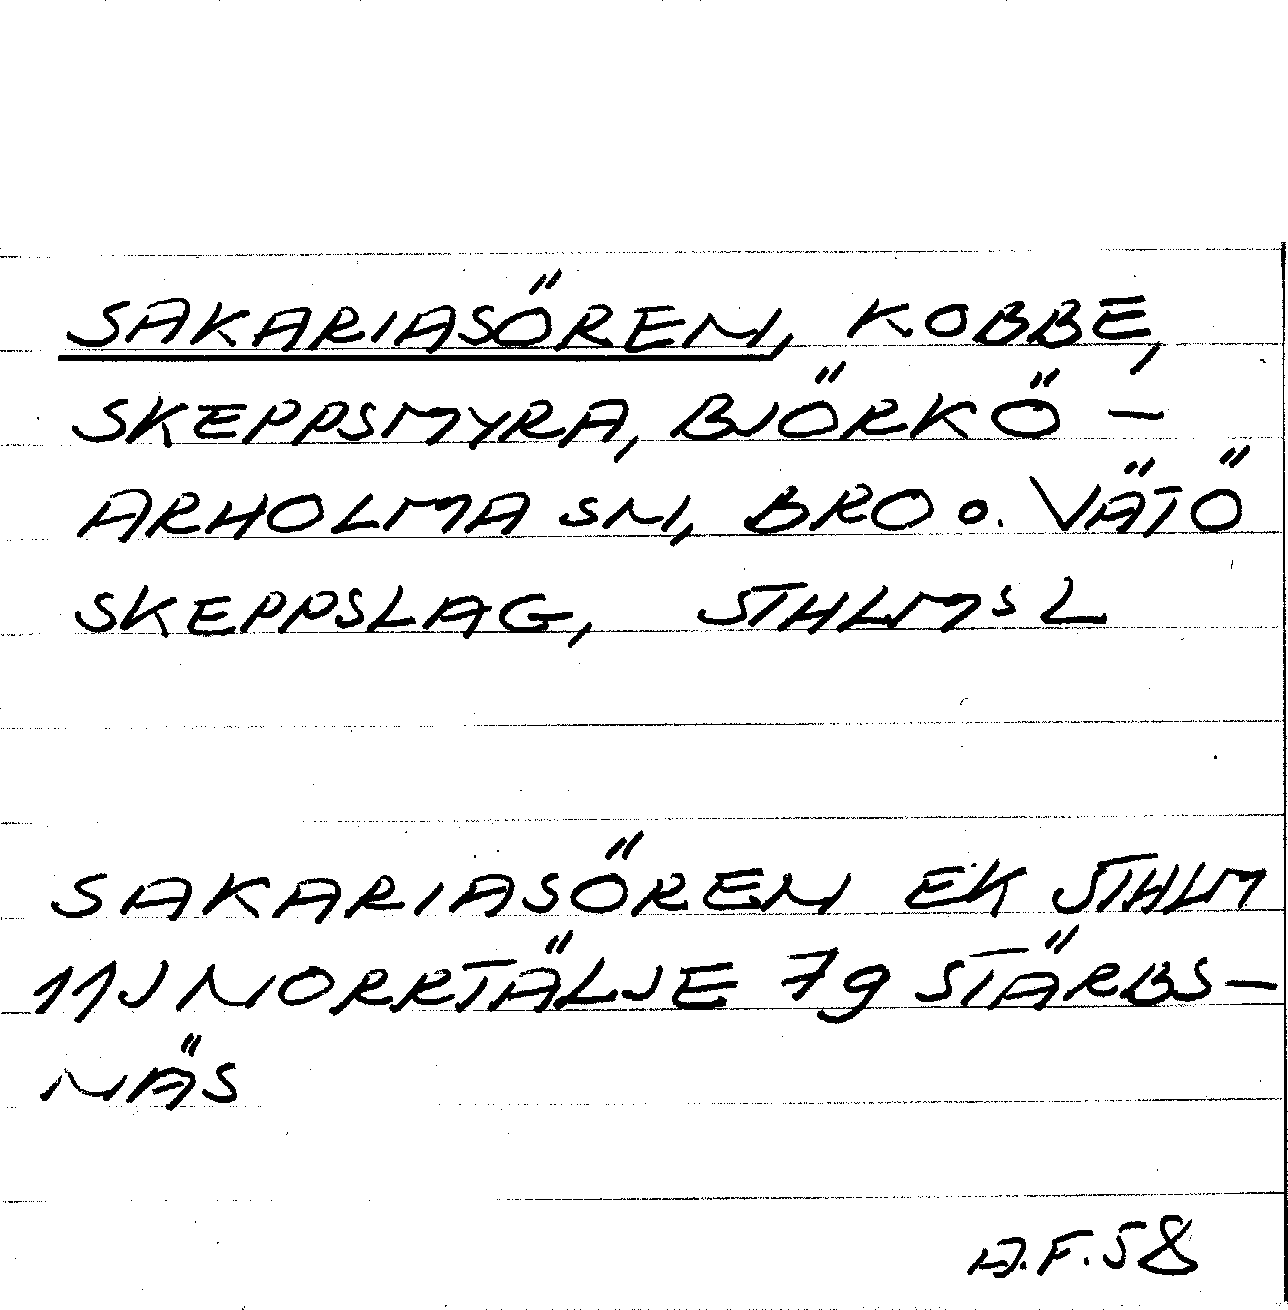 SAKARIASÖREN, KOBBE,
SKEPPSMYRA, BJÖRKÖ –
ARHOLMA SN, BRO o. VÄTÖ
SKEPPSLAG, STHLMS L
SAKARIASÖREN EK STHLM
11J NORRTÄLJE 7g STÄRBS–
NÄS
A.F.58